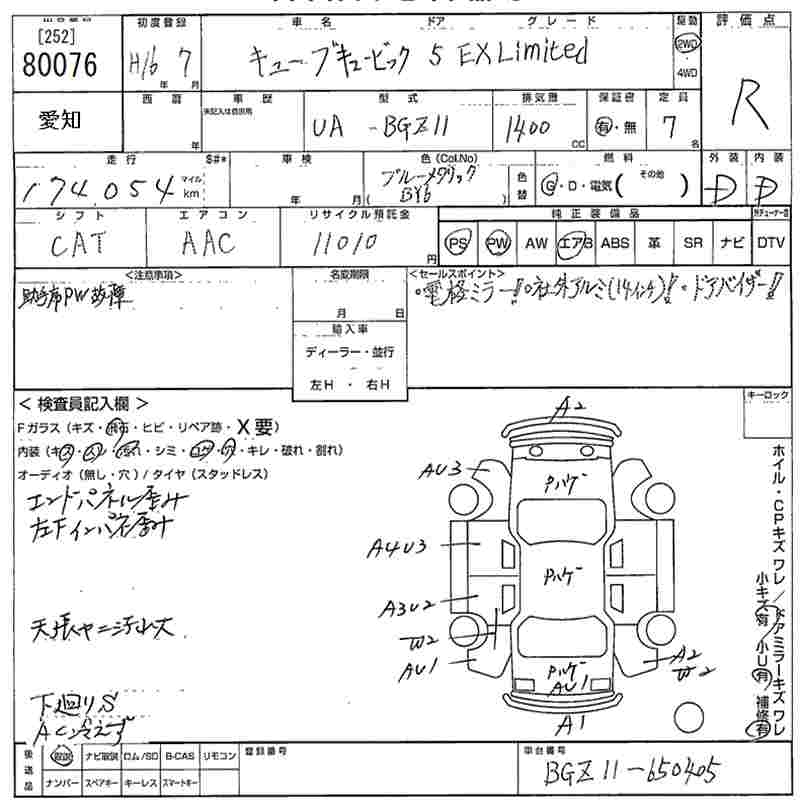 [252]
80076
初度登録
H16 7
年 月
車名 ドア グレード
キューブキュービック 5 EX Limited
駆動
2WD
・4WD
評価点
R
愛知
西暦
年
車歴
未記入は自家用
型式
UA -BGZ11
排気量
1400 cc
保証書
有・無
定員
7 名
走行 $#*
174,054 マイル km
車検
年 月
色(Col.No)
ブルーメタリック
( BY6 )
色替
燃料
G・D・電気( その他 )
外装 内装
D D
シフト
CAT
エアコン
AAC
リサイクル預託金
11010 円
純正装備品
PS PW AW エアB ABS 革 SR ナビ DTV
<注意事項>
助手席PW故障
名変期限
月 日
輸入車
ディーラー・並行
左H ・ 右H
<セールスポイント>
・電格ミラー!!・社外アルミ(14インチ)!!・ドアバイザー!!
< 検査員記入欄 >
Fガラス(キズ・飛石・ヒビ・リペア跡・X要)
内装(キズ・スレ・汚れ・シミ・コゲ・穴・キレ・破れ・割れ)
オーディオ(無し・穴)/タイヤ(スタッドレス)
エンドパネル歪み
左下インパネ歪み
天張ヤニ汚れ大
下廻りS
AC冷えず
A2
AU3
Pハゲ
A4U3
Pハゲ
A3U2
W2
AU1
Pハゲ
AU1
A2
W2
A1
キーロック
ホイル・CPキズ ワレ/ドアミラーキズ ワレ
小キズ有/小U有/補修有
後送品
取説 ナビ取説 ロム/SD B-CAS リモコン
ナンバー スペアキー キーレス スマートキー
登録番号
車台番号
BGZ11-650405